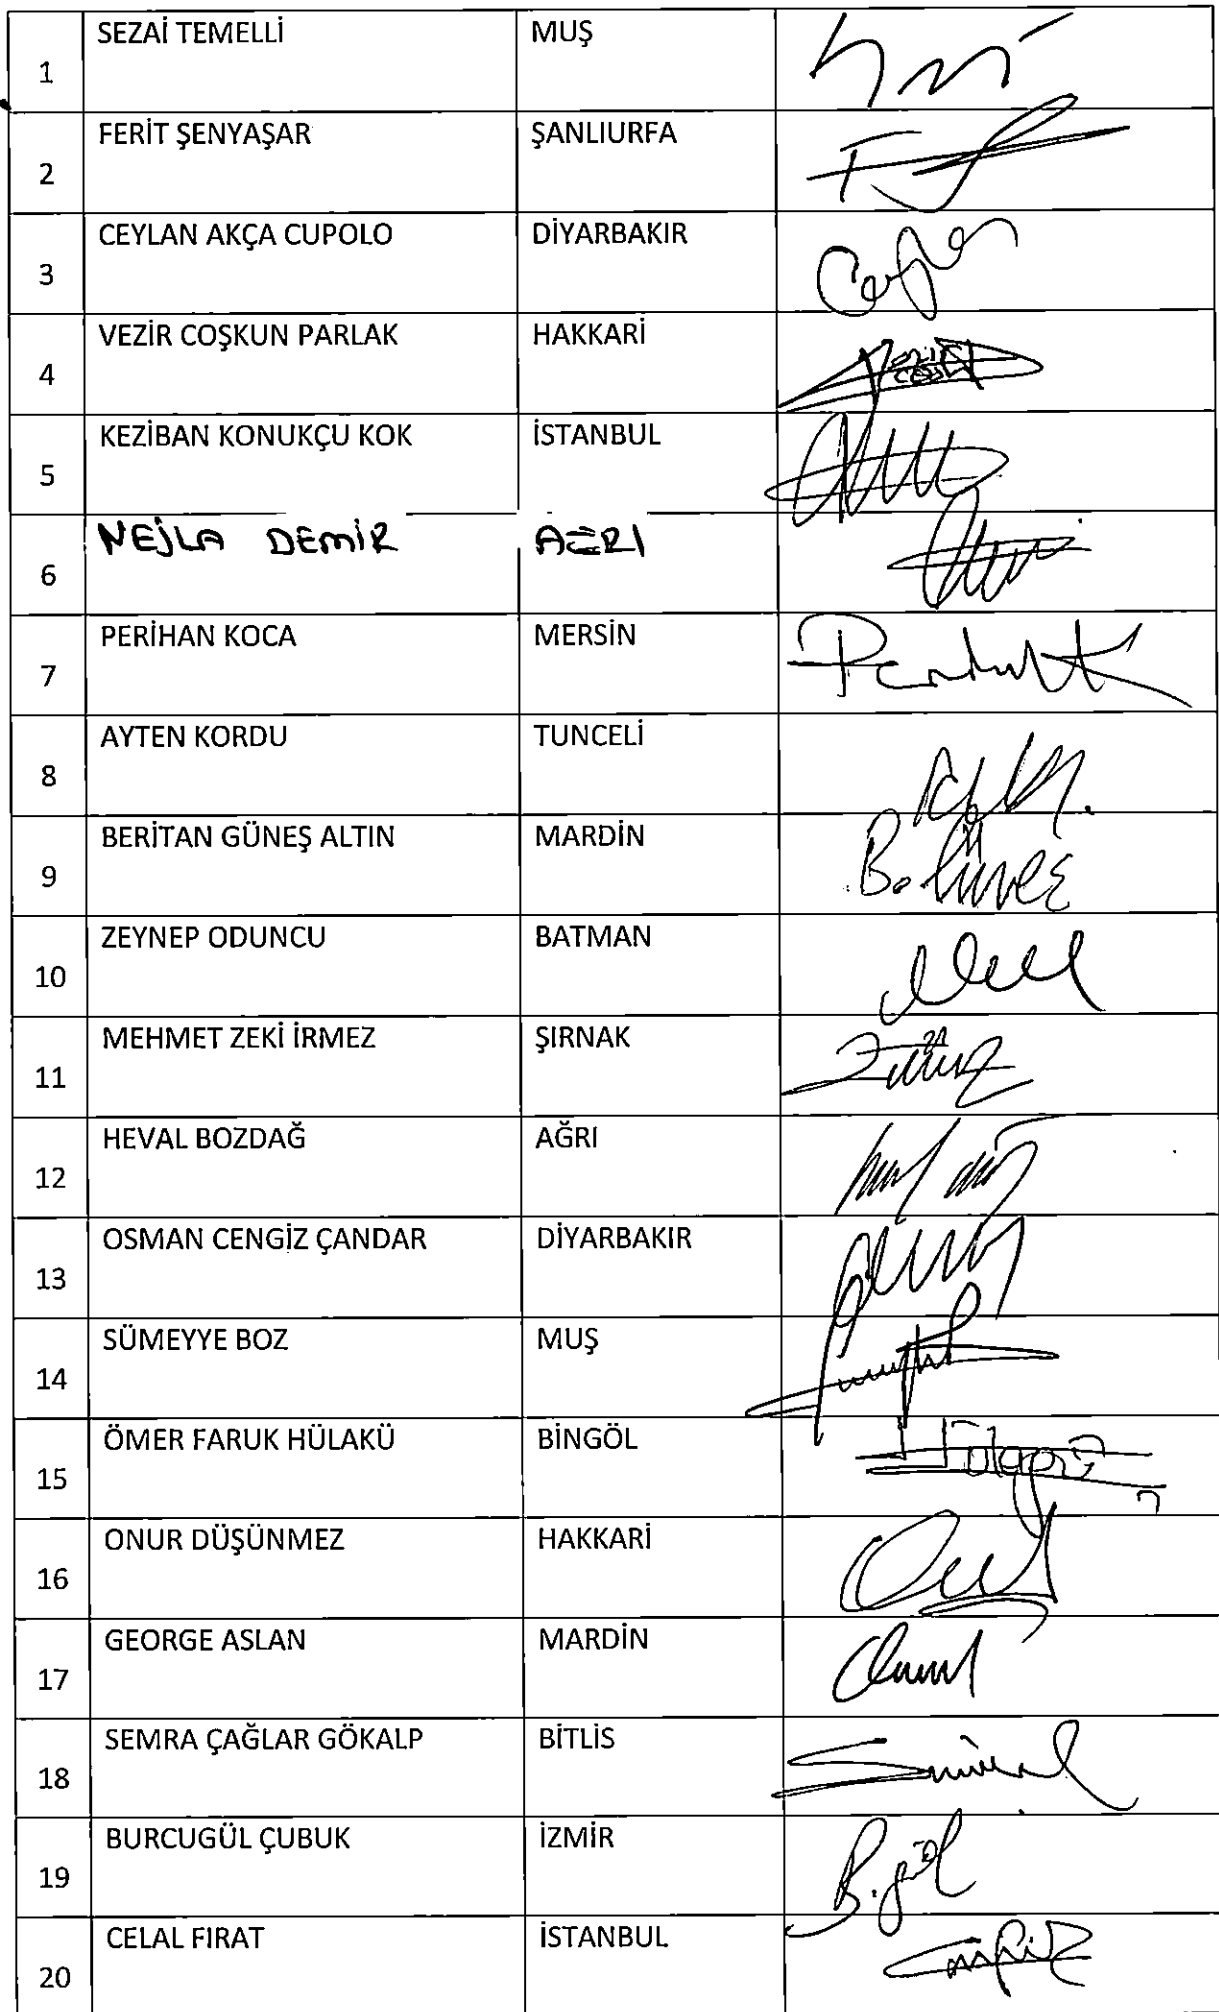 1 SEZAİ TEMELLİ MUŞ
2 FERİT ŞENYAŞAR ŞANLIURFA
3 CEYLAN AKÇA CUPOLO DİYARBAKIR
4 VEZİR COŞKUN PARLAK HAKKARİ
5 KEZİBAN KONUKÇU KOK İSTANBUL
6 NEJLA DEMİR AĞRI
7 PERİHAN KOCA MERSİN
8 AYTEN KORDU TUNCELİ
9 BERİTAN GÜNEŞ ALTIN MARDİN B. Güneş
10 ZEYNEP ODUNCU BATMAN
11 MEHMET ZEKİ İRMEZ ŞIRNAK
12 HEVAL BOZDAĞ AĞRI
13 OSMAN CENGİZ ÇANDAR DİYARBAKIR
14 SÜMEYYE BOZ MUŞ
15 ÖMER FARUK HÜLAKÜ BİNGÖL
16 ONUR DÜŞÜNMEZ HAKKARİ
17 GEORGE ASLAN MARDİN
18 SEMRA ÇAĞLAR GÖKALP BİTLİS
19 BURCUGÜL ÇUBUK İZMİR B.gül
20 CELAL FIRAT İSTANBUL